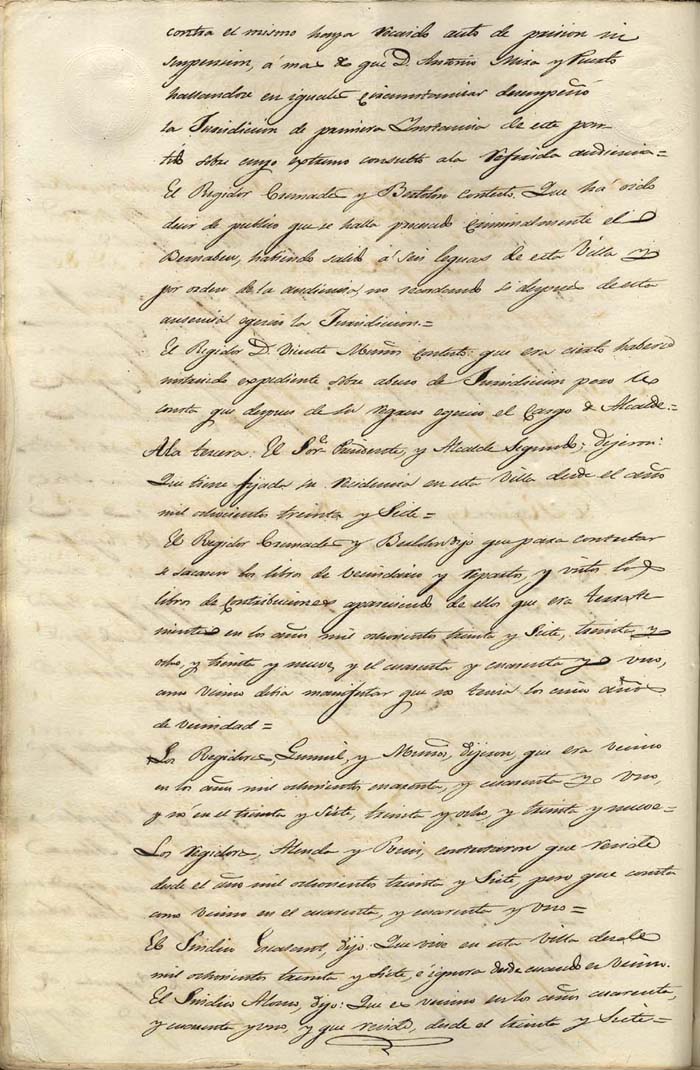 contra el mismo haya recaido auto de prision ni
suspension, á mas de que D. Antonio Mira y
hallandose en iguales circunstancias desempeñó
la Jurisdicion de primera Instancia de este par-
tido sobre cuyo extremo consultó ala referida audiencia=
El Regidor Cremades y contestó. Que há oido
decir de publico que se halla procesado criminalmente el
Bernabeu, habiendo salido á seis leguas de esta Villa
por orden de la audiencia, no recordando si despues de esta
ausencia egerció la Jurisdicion=
El Regidor D. Vicente contestó: que era cierto haberse
instruido expediente sobre abuso de Jurisdicion pero le
consta que despues de su regreso egerció el Cargo de Alcalde=
Ala tercera. El Sor. Presidente, y Alcalde Segundo, dijeron:
Que tiene fijada su residencia en esta Villa desde el año
mil ochocientos treinta y Siete=
El Regidor Cremades y dijo que para contestar
se sacasen los libros de vecindario y repartos, y vistos los
libros de Contribuciones apareciendo de ellos que era terrate-
niente en los años mil ochocientos treinta y Siete, treinta y
ocho, y treinta y nueve, y el cuarenta y cuarenta y uno,
como vecino debia manifestar que no tenia los cinco años
de vecindad=
Los Regidores, y dijeron, que era vecino
en los años mil ochocientos cuarenta, y cuarenta y uno,
y nó en el treinta y Siete, treinta y ocho, y treinta y nueve=
Los regidores, Alenda y contestaron que reside
desde el año mil ochocientos treinta y Siete, pero que consta
como vecino en el cuarenta, y cuarenta y uno=
El Sindico Escolano, dijo: Que vive en esta villa desde
mil ochocientos treinta y siete, é ignora desde cuando es vecino.
El Sindico Alonso, dijo: Que es vecino en los años cuarenta,
y cuarenta y uno, y que reside, desde el treinta y Siete=